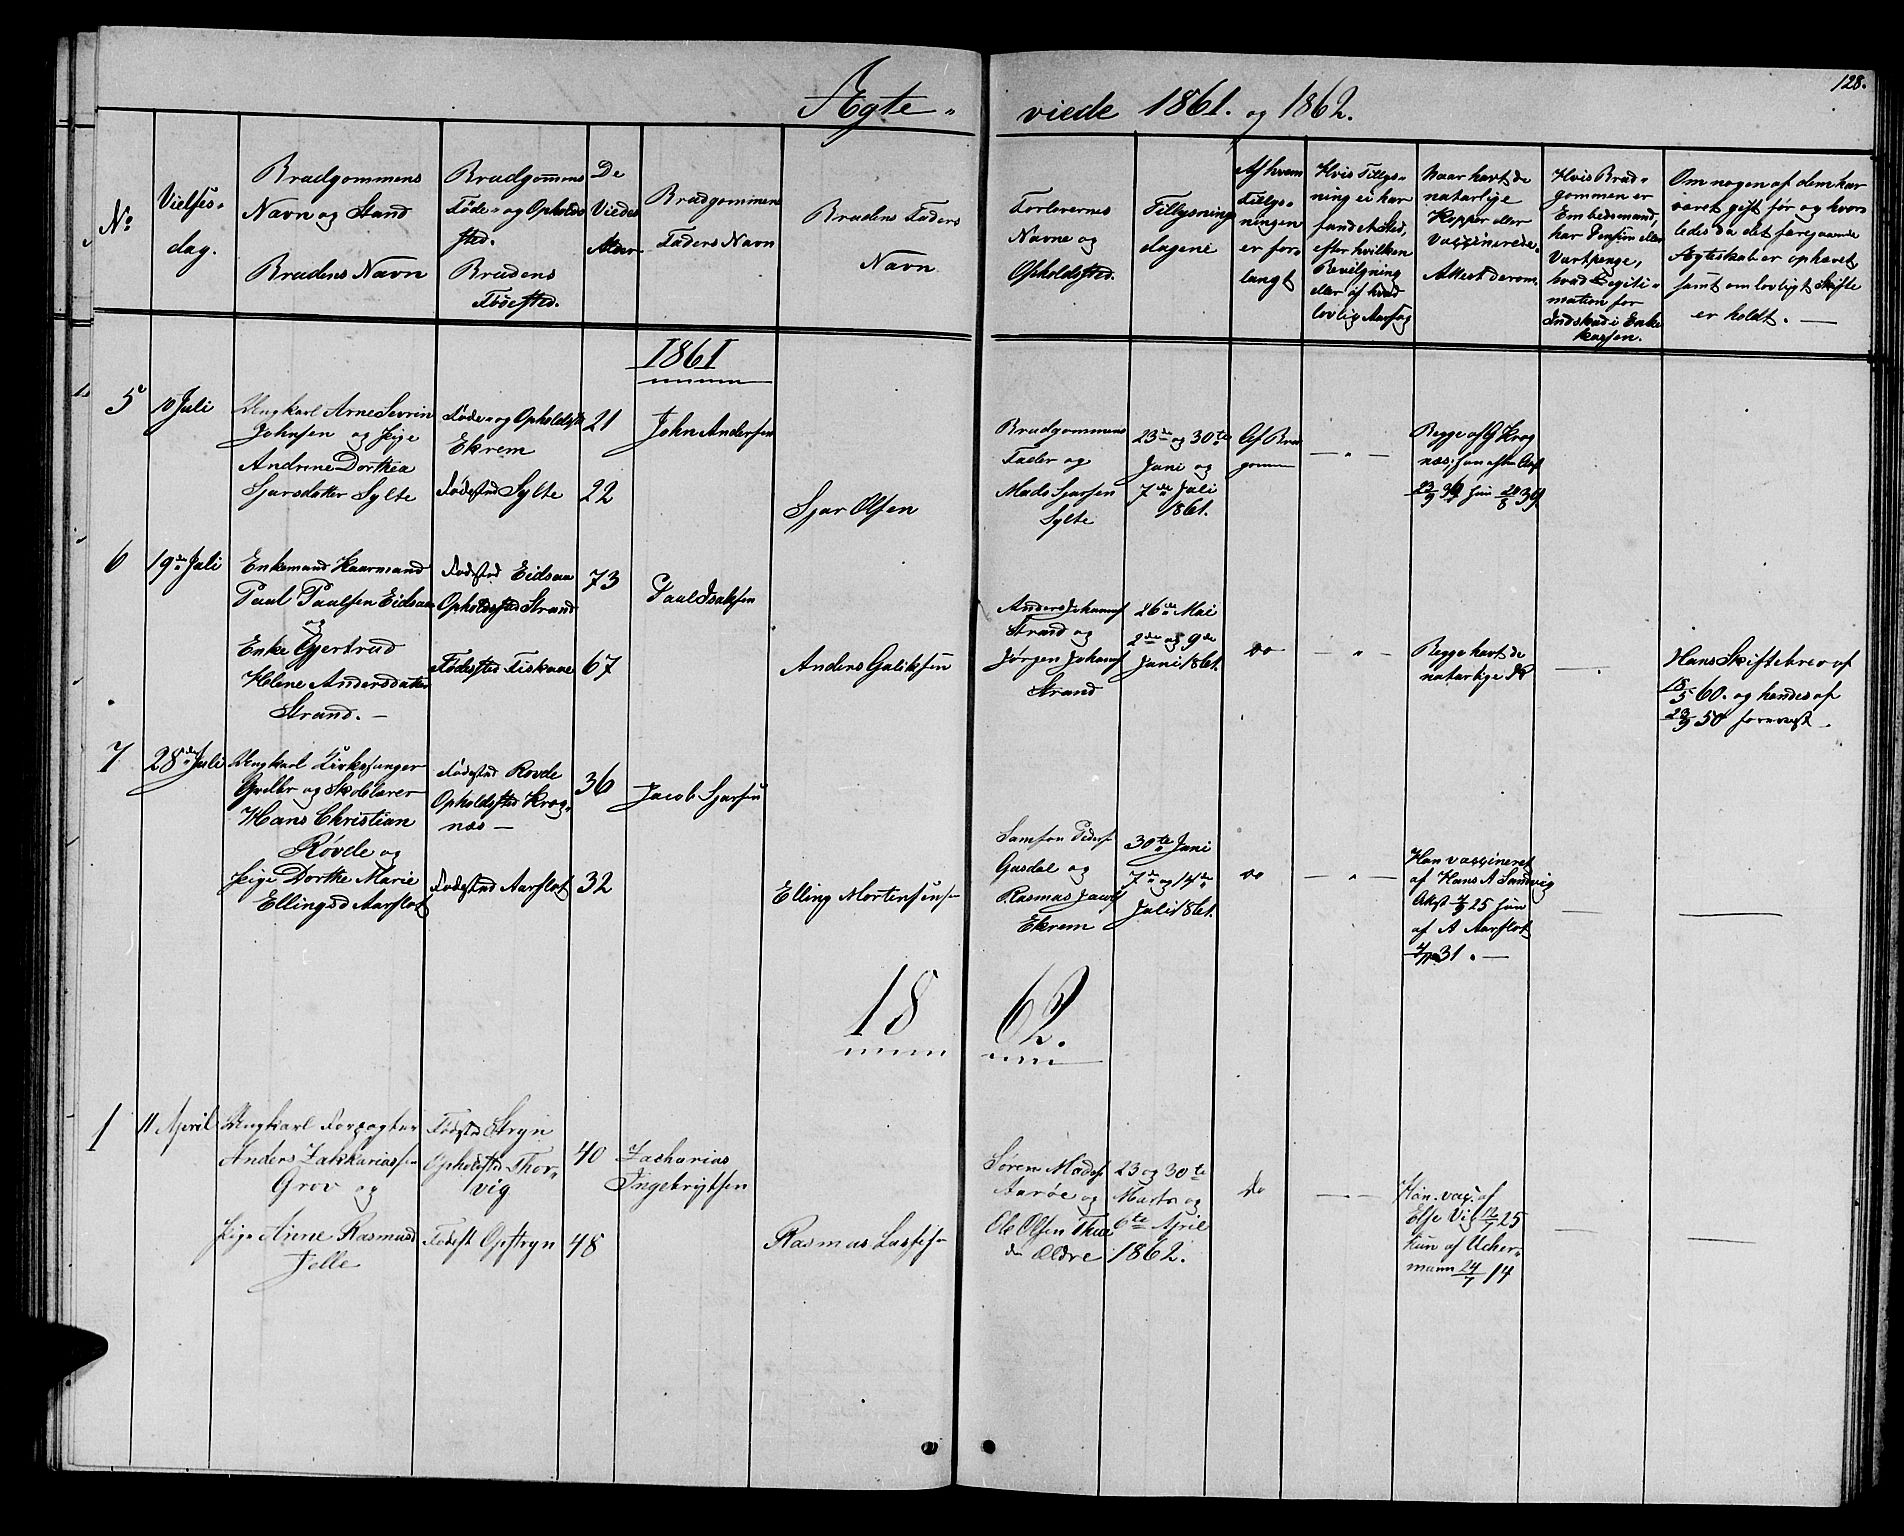 128.
Ægte-
viede 1861. og 1862.
No
Vielses-
dag.
Brudgommens
Navn og Stand
Brudens Navn
Brudgommens
Føde- og Opholds
sted.
Brudens
Fødested.
De
Viedes
Alder
Brudgommens
Faders Navn
Brudens Faders
Navn
Forlovernes
Navne og
Opholdsted.
Tillysnings
dagene
Af hvem
Tillys-
ningen
er for-
langt
Hvis Tillys-
ning ei har
fundet Sted,
efter hvilken
Bevilgning
eller af hvad
lovlig Aarsag
Naar havt de
naturlige
Kopper eller
vaccinerede.
Attest derom.
Hvis Brud-
gommen er
Embedsmand,
har Pension eller
Vartpenge,
hvad Legiti-
mation for
Indskud i Enke
kassen.
Om nogen af dem har
været gift før og hvor-
ledes da det foregaaende
Ægteskab er ophævet,
samt om lovligt Skifte
er holdt. —
1861
5
10 Juli
Ungkarl Arne Sevrin
Johnsen og Pige
Andrine Dorthea
Sjursdatter Sylte
Føde- og Opholdsst
Ekrem
Fødested Sylte
21
22
John Andersen
Sjur Olsen
Brudgommens
Fader og
Mads Sjursen
Sylte
23de og 30te
Juni og
7de Juli
1861.
Af Brud
gommen
— " —
Begge af G Krog
næs, han efter Att
6
19de Juli
Enkemand Kaarmand
Paul Paulsen Eidsaa
og
Enke Gjertrud
Helene Andersdatter
Strand. —
Fødested Eidsaa
Opholdsted Strand
Fødested Fiskaae
73
67
Paul Isaksen
Anders Guliksen
Anders Johannes
Strand og
Jørgen Johans
Strand
26de Mai
2den og 9de
Juni 1861.
do
— " —
Begge havt de
naturlige K
—
Hans Skiftebrev af
18/5 60. og hendes af
23/9 50 forevist —
7
28de Juli
Ungkarl Kirkesanger
og Skolelærer
Hans Christian
Røvde og
Pige Dorthe Marie
Ellingsd Aarflot
Fødested Rovde
Opholdsted Krog-
næs —
Fødested Aarflot
36
32
Jacob Sjursen
Elling Mortensen
Samson Peders
Gusdal og
Rasmus Jacobs
Ekrem
30te Juni
7de og 14de
Juli 1861.
do
— " —
Han vaccineret
af Hans A Sandvig
Attst 25 hun
af A Aarflot
31. —
—
—
18 62.
1
11 April
Ungkarl Forpagter
Anders Zakkariassen
Grov og
Pige Anne Rasmusd
Jelle
Fødested Stryn
Opholdsted Thor-
vig
Fødest Opstryn
40
48
Zacharias
Ingebrigtsen
Rasmus Lassesen
Søren Mads
Aarøe og
Ole Olsen Thue
den Ældre
23 og 30te
Marts og
6te April
1862.
do
— " —
Han. vac. af
Else Vig 12/7 25
Hun af Ucher-
mann 24/7 14
—
—